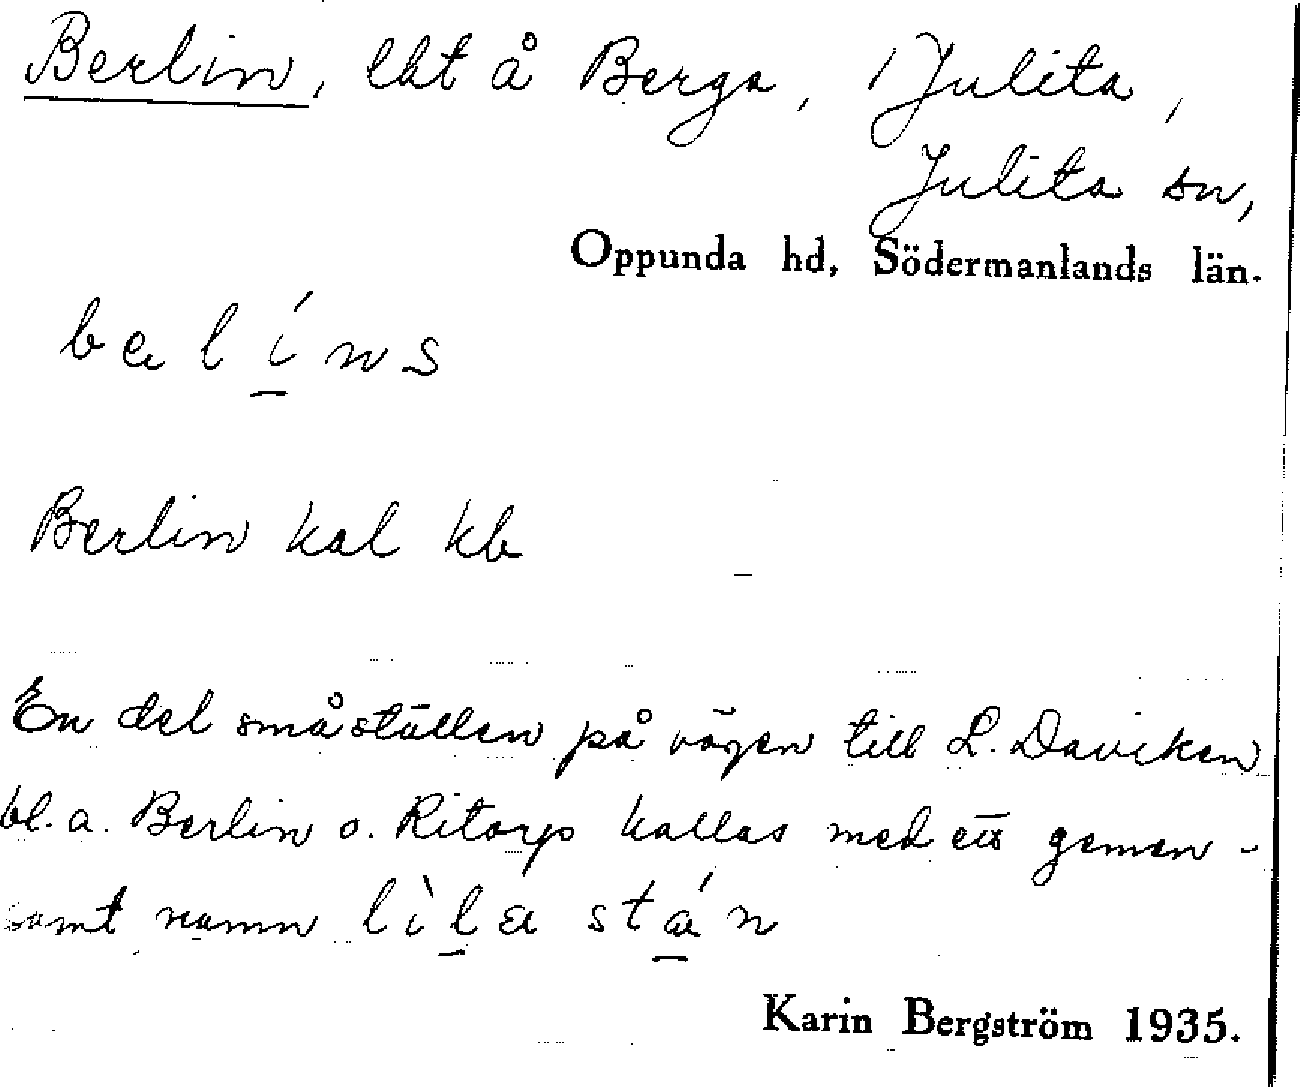 Berlin, lht å Berga, Julita,
Julita sn,
Oppunda hd, Södermanlands län.
bælíns
Berlin kal kb
En del småställen på vägen till L. Daviken
bl. a. Berlin o. Ritorp kallas med ett gemen-
samt namn lìla stán
Karin Bergström 1935.